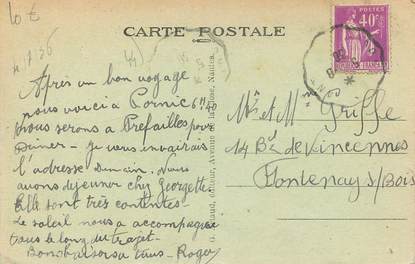 10 €
4.8.36
CARTE POSTALE
POSTES
40c
Après un bon voyage
nous voici à Pornic 6h40
Nous serons à Préfailles pour
Dîner - je vous enverrais
l'adresse Demain. Nous
avons déjeuner chez Georgette
Elle sont très contentes -
Le soleil nous a accompagné
tous le long du trajet -
Bons baisers à tous - Roger
Mr et Mme Griffe
14 Bd de Vincennes
Fontenay s/Bois